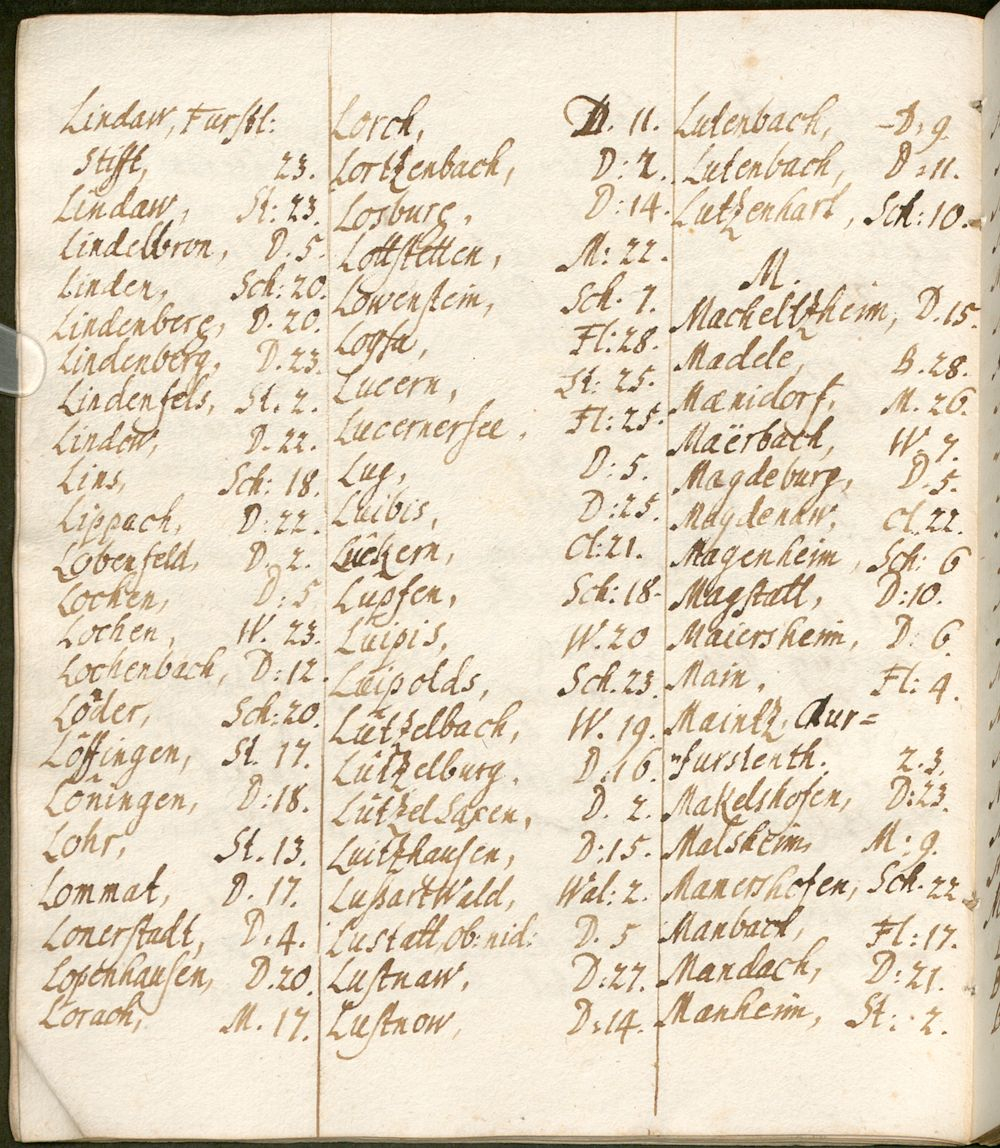 Lindaw, Furstl:
Stifft, 23.
Lindaw, St: 23.
Lindelbron, D. 5.
Linden, Sch: 20.
Lindenberg, D. 20.
Lindenberg, D. 23.
Lindenfels, St. 2.
Lindow, D. 22.
Lins, Sch: 18.
Lippach, D: 22.
Lobenfeld, D. 2.
Lochen, D: 5
Lochen, W. 23.
Lochenbach, D: 12.
Löder, Sch: 20.
Löffingen, St. 17.
Löningen, D: 18.
Lohr, St. 13.
Lommat, D. 17.
Lonerstadt, D. 4.
Lopenhausen, D. 20.
Lörach, M. 17.
Lorch, D. 11.
Lortzenbach, D: 2.
Losburg, D: 14.
Lottstetten, M: 22.
Lowenstein, Sch. 7.
Fl: 28.
Lucern, St: 25.
Lucernersee, Fl: 25.
Lug, D: 5.
Luibis, D: 25.
Lückern, Cl: 21.
Lupfen, Sch: 18.
Luipis, W. 20
Luipolds, Sch. 23.
Lützelbach, W. 19.
Lützelburg, D. 16.
Lützel Saxen, D. 2.
Luitzhausen, D: 15.
Lußart Wald, Wal: 2.
Lustatt, ob: nid: D. 5
Lustnaw, D: 27.
Lustnow, D: 14.
Lutenbach, D: 9.
Lutenbach, D: 11.
Lutzenhart, Sch: 10.
M.
Macheltzheim, D. 15.
Madele, B. 28.
Mænidorf, M. 26.
Maërbach, W. 7.
Magdeburg, D. 5.
Magdenaw, Cl. 22.
Magenheim, Sch: 6
Magstatt, D: 10.
Maiersheim, D: 6.
Main, Fl: 4.
Maintz, Chur=
furstenth. 2. 3.
Makelshofen, D: 23.
Malsheim, M: 9.
Mamershofen, Sch. 22.
Manbach, Fl: 17.
Mandach, D: 21.
Manheim, St: 2.